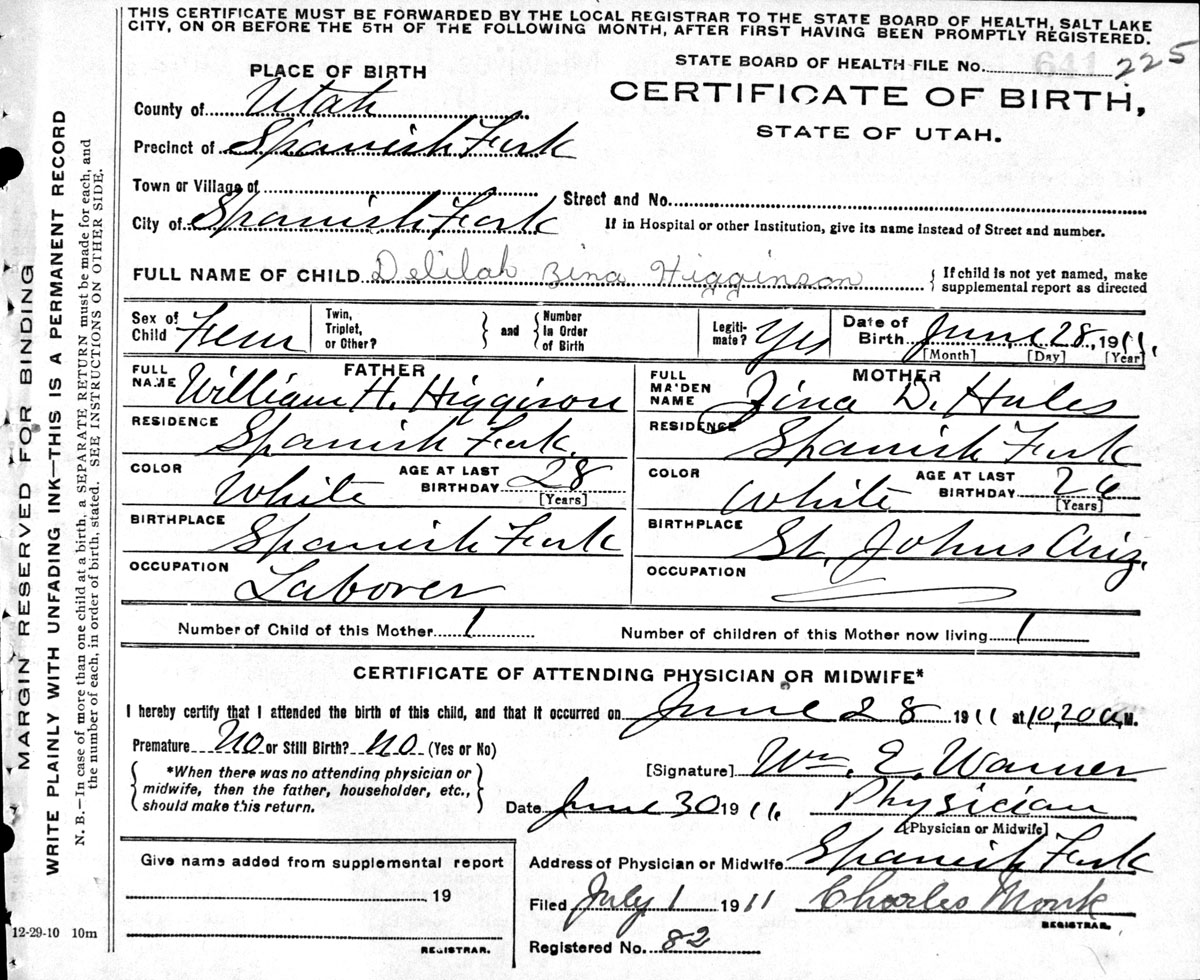 THIS CERTIFICATE MUST BE FORWARDED BY THE LOCAL REGISTRAR TO THE STATE BOARD OF HEALTH, SALT LAKE
CITY, ON OR BEFORE THE 5TH OF THE FOLLOWING MONTH, AFTER FIRST HAVING BEEN PROMPTLY REGISTERED.
STATE BOARD OF HEALTH FILE No. 225
CERTIFICATE OF BIRTH,
STATE OF UTAH.
PLACE OF BIRTH
County of Utah
Precinct of Spanish Fork
Town or Village of
Street and No.
City of Spanish Fork
If in Hospital or other Institution, give its name instead of Street and number.
FULL NAME OF CHILD Delilah Zina Higginson
If child is not yet named, make
supplemental report as directed
Sex of Child Fem
Twin, Triplet, or Other?
and
Number In Order of Birth
Legiti-mate? Yes
Date of Birth June 28, 1911.
[Month] [Day] [Year]
FATHER
FULL NAME William H. Higginson
RESIDENCE Spanish Fork.
COLOR White
AGE AT LAST BIRTHDAY 28
[Years]
BIRTHPLACE Spanish Fork
OCCUPATION Laborer
MOTHER
FULL MAIDEN NAME Zina D. Hales
RESIDENCE Spanish Fork
COLOR White
AGE AT LAST BIRTHDAY 26
[Years]
BIRTHPLACE St. Johns Ariz.
OCCUPATION
Number of Child of this Mother 1
Number of children of this Mother now living 1
CERTIFICATE OF ATTENDING PHYSICIAN OR MIDWIFE*
I hereby certify that I attended the birth of this child, and that it occurred on June 28 1911 at 10,20 a M.
Premature No or Still Birth? No (Yes or No)
*When there was no attending physician or
midwife, then the father, householder, etc.,
should make this return.
[Signature] Wm. E. Warner
Date June 30 1911. Physician
[Physician or Midwife]
Give name added from supplemental report
19
REGISTRAR.
Address of Physician or Midwife Spanish Fork
Filed July 1 1911 Charles Monk
REGISTRAR.
Registered No. 82
12-29-10 10m
MARGIN RESERVED FOR BINDING
WRITE PLAINLY WITH UNFADING INK—THIS IS A PERMANENT RECORD
N. B.—In case of more than one child at a birth, a SEPARATE RETURN must be made for each, and
the number of each, in order of birth, stated. SEE INSTRUCTIONS ON OTHER SIDE.